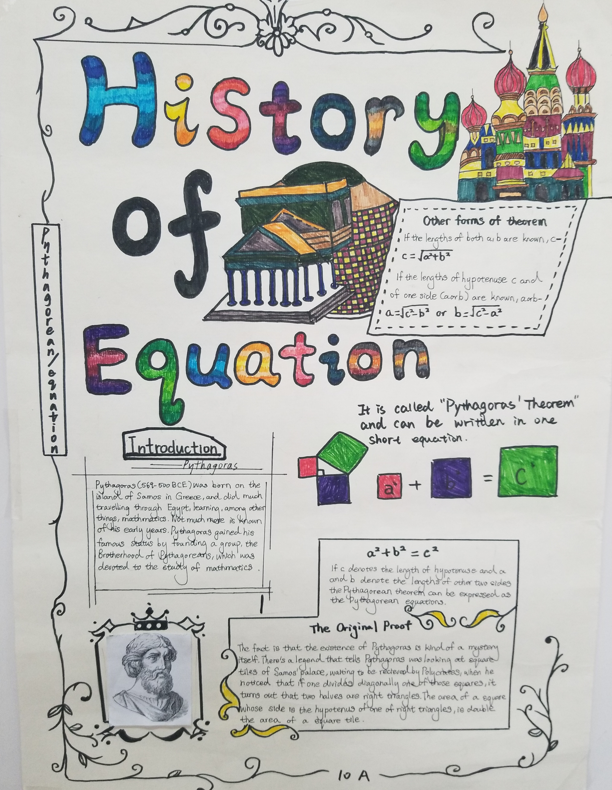 History
of
Equation
Pythagorean/equation
Other forms of theorem
If the lengths of both a, b are known, c-
c = √a²+b²
If the lengths of hypotenuse c and
of one side (a or b) are known, a or b-
a=√c²-b² or b=√c²-a²
It is called "Pythagoras' Theorem"
and can be written in one
short equation.
a² + b² = c²
Introduction
Pythagoras
Pythagoras (569-500 BCE) was born on the
island of Samos in Greece, and did much
travelling through Egypt, learning, among other
things, mathmatics. Not much more is known
of his early years. Pythagoras gained his
famous status by founding a group, the
Brotherhood of Pythagoreans, which was
devoted to the study of mathmatics.
a²+b² = c²
If c denotes the length of hypotenuse and a
and b denote the lengths of other two sides
the Pythagorean theorem can be expressed as
the Pythagorean equations.
The Original Proof
The fact is that the existence of Pythagoras is kind of a mystery
itself. There's a legend that tells Pythagoras was looking at square
tiles of Samos' palace, waiting to be recieved by Polycrates, when he
noticed that if one divides diagonally one of those squares, it
turns out that two halves are right triangles. The area of a square
whose side is the hypotenus of one of right triangles, is double
the area of a square tile.
10 A